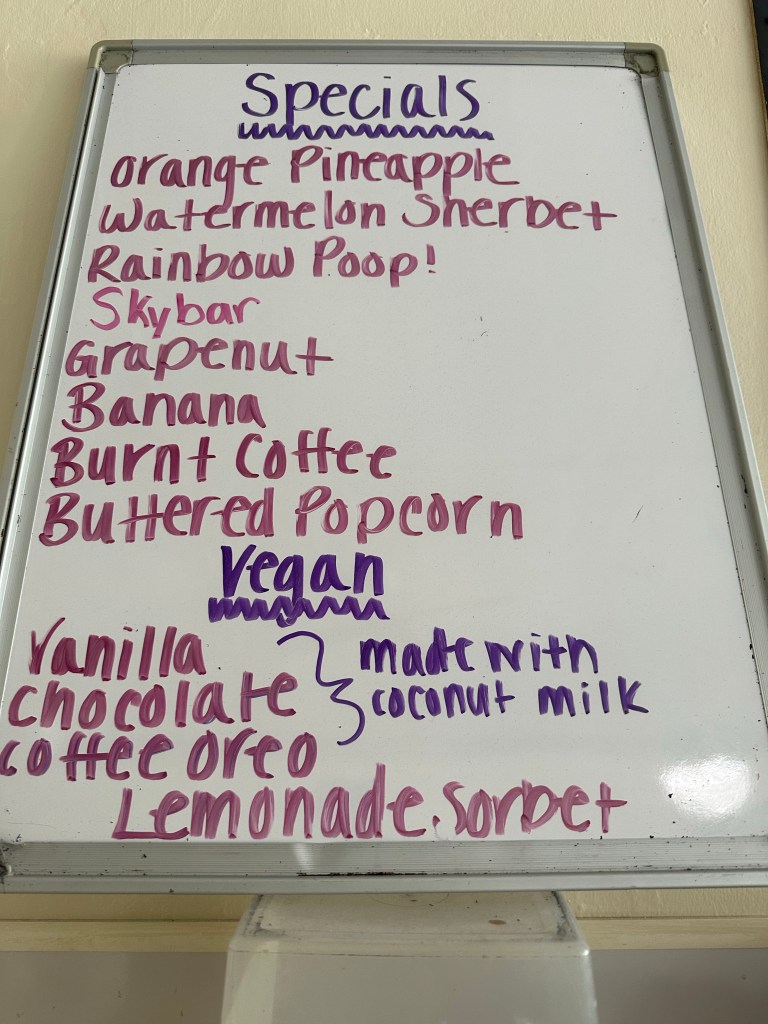 Specials
orange Pineapple
Watermelon Sherbet
Rainbow Poop!
Skybar
Grapenut
Banana
Burnt Coffee
Buttered Popcorn
Vegan
Vanilla
chocolate
coffee oreo
made with
coconut milk
Lemonade Sorbet